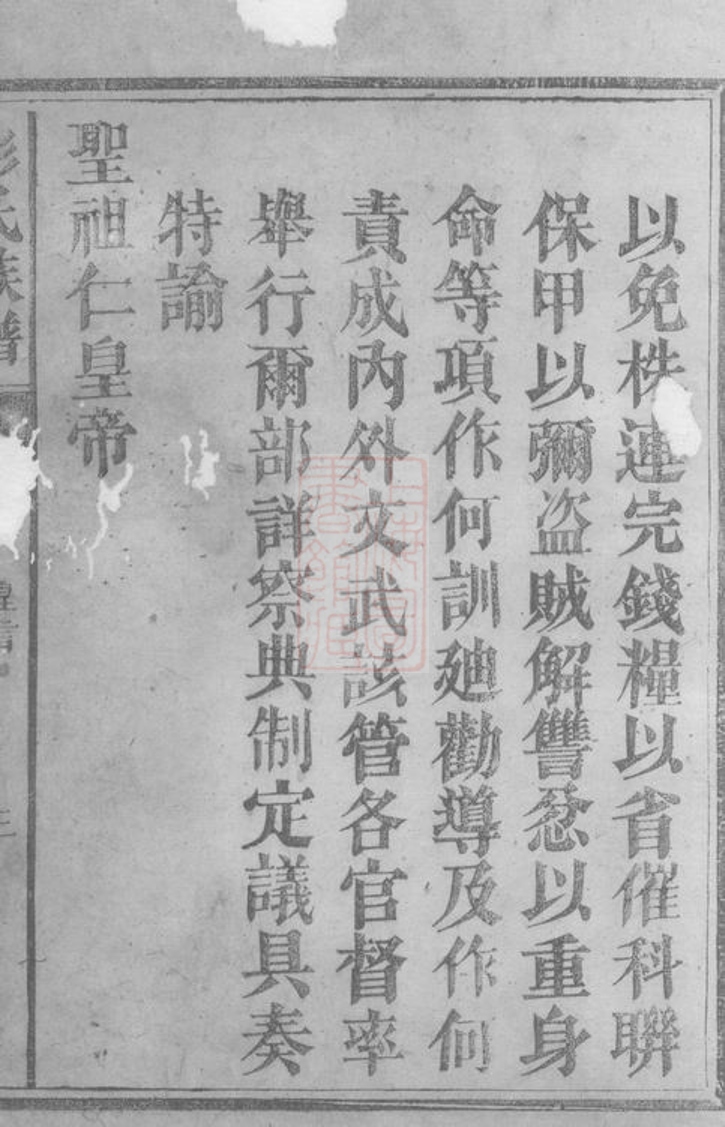 以免株連完錢糧以省催科聯
保甲以彌盜賊解讐忿以重身
命等項作何訓廸勸導及作何
責成內外文武該管各官督率
舉行爾部詳察典制定議具奏
特諭
聖祖仁皇帝
氏族譜